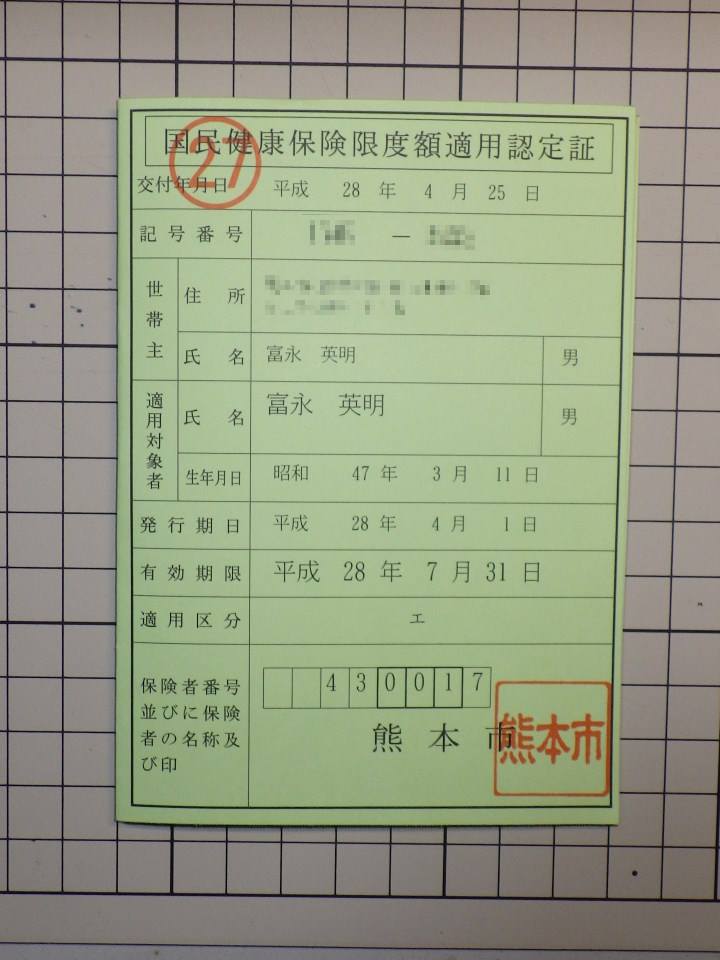 国民健康保険限度額適用認定証
27
交付年月日 平成 28 年 4 月 25 日
記号番号 －
世帯主 住所
氏名 富永 英明 男
適用対象者 氏名 富永 英明 男
生年月日 昭和 47 年 3 月 11 日
発行期日 平成 28 年 4 月 1 日
有効期限 平成 28 年 7 月 31 日
適用区分 エ
保険者番号
並びに保険
者の名称及
び印
430017
熊本市
熊本市